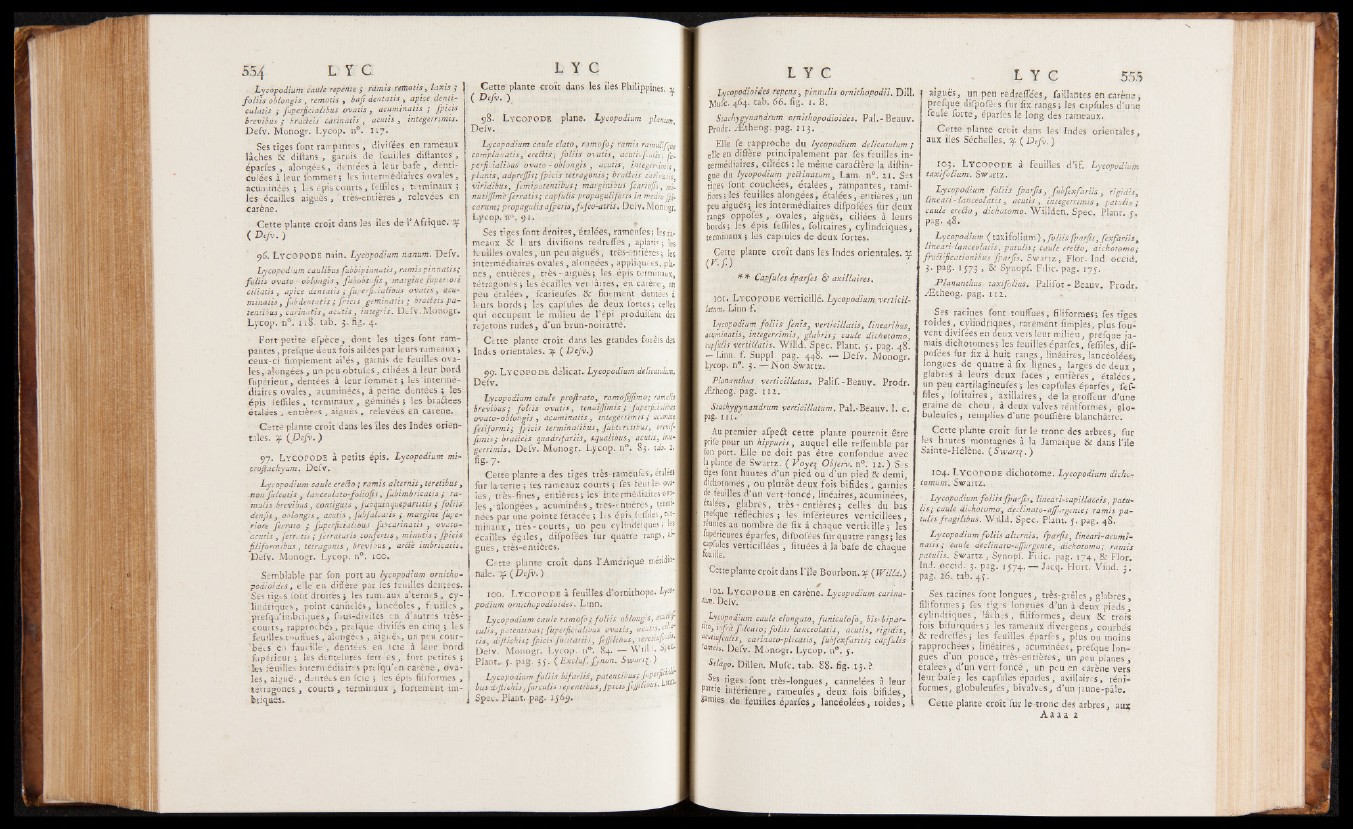 554 L Y C
Lycopodium caule repente ; ramis remotis, laxis ;
foliis oblongis, remotis, basi dentatis, apice denti-
culatis ; superficialibus ovatis, acuminatis ; spicis
brevibus ; bracteis carinatis, acutis, integerrimis.
Desv. Monogr. Lycop. n°. 117.
Ses tiges sont rampantes, divisées en rameaux
lâches & distans, garnis de feuilles distantes,
éparses, alongées, dentées à leur base, denti-
culées à leur sommet ; les intermédiaires ovales,
acuminées ; les épis courts, sessiles, terminaux ;
les écailles aiguës, très-entières, relevées en
carène.
Cette plante croît dans les îles de l'Afrique. ♃
( Desv. )
96. LYCOPODE nain. Lycopodium nanum. Desv.
Lycopodium caulibus subbipinnatis, ramis pinnatis ;
foliis ovato-oblongis, subobtusis, margine superiori
ciliatis, apice dentatis ; superficialibus ovatis, acu-
minatis, subdentatis ; spicis geminatis ; bracteis pa-
tentibus, carinatis, acutis, integris. Desv. Monogr.
Lycop. n°. 118. tab. 3. fig. 4.
Fort petite espèce, dont les tiges sont ram-
pantes, presque deux fois ailées par leurs rameaux ;
ceux-ci simplement ailés, garnis de feuilles ova-
les, alongées, un peu obtuses, ciliées à leur bord
supérieur, dentées à leur sommet ; les intermé-
diaires ovales, acuminées, à peine dentées ; les
épis sessiles, terminaux, géminés ; les bractées
étalées, entières, aiguës, relevées en carène.
Cette plante croît dans les îles des Indes orien-
tales. ♃ (Desv.)
97. LYCOPODE à petits épis. Lycopodium mi-
crostachyum. Desv.
Lycopodium caule erecto ; ramis alternis, teretibus,
non sulcatis, lanceolato-foliosis, subimbricatis ; ra-
mulis brevibus, contiguis, subquinquepartitis ; foliis
densis, oblongis, acutis, subfalcatis ; margine supe-
riore serrato ; superficialibus subcarinatis, ovato-
acutis, serratis ; serraturis confertis, minutis ; spicis
filiformibus, tetragonis, brevibus, arctè imbricatis.
Desv. Monogr. Lycop. n°. 100.
Semblable par son port au lycopodium ornitho-
podioides, elle en diffère par ses feuilles dentées.
Ses tiges sont droites ; les rameaux alternes, cy-
lindriques, point cannelés, lancéolés, feuillés,
presqu'imbriqués, sous-divisés en d'autres très-
courts, rapprochés, presque divisés en cinq ; les
feuilles touffues, alongées, aiguës, un peu cour-
bées en faucille, dentées en scie à leur bord
supérieur ; les dentelures serrées, fort petites ;
les feuilles intermédiaires presqu'en carène, ova-
les, aiguës, dentées en scie ; les épis filiformes,
tétragones, courts, terminaux, fortement im-
briqués.
L Y C
Cette plante croît dans les îles Philippines. ♃
( Desv. )
98. LYCOPODE plane. Lycopodium planum.
Desv.
Lycopodium caule elato, ramoso ; ramis ramulisque
complanatis, erectis ; foliis ovatis, acutiusculis ; su-
perficialibus ovato-oblongis, acutis, integerrimis,
planis, adpressis ; spicis tetragonis ; bracteis carinatis,
viridibus, semipatentibus ; marginibus scariosis, mi-
nutissimè serratis ; capsulis propaguliferis in medio spi-
carum ; propagulis asperis, fusco-atris. Desv. Monogr.
Lycop. n°. 91.
Ses tiges sont droites, étalées, rameuses ; les ra-
meaux & leurs divisions redressés, aplatis ; les
feuilles ovales, un peu aiguës, très-entières ; les
intermédiaires ovales, alongées, appliquées, pla-
nes, entières, très-aiguës ; les épis terminaux,
tétragones ; les écailles verdâtres, en carène, un
peu étalées, scarieuses & finement dentées à
leurs bords ; les capsules de deux sortes ; celles
qui occupent le milieu de l'épi produisent des
rejetons rudes, d'un brun-noirâtre.
Cette plante croît dans les grandes forêts des
Indes orientales. ♃ ( Desv.)
99. LYCOPODE délicat. Lycopodium delicatulum.
Desv.
Lycopodium caule prostrato, ramosissimo ; ramulis
brevibus ; foliis ovatis, tenuissimis ; superficialibus
ovato-oblongis, acuminatis, integerrimis ; acumine
setiformi ; spicis terminalibus, subteretibus, brevis-
simis ; bracteis quadrifariis, æqualibus, acutis, inte-
gerrimis. Desv. Monogr. Lycop. n°. 83. tab. 2.
fig. 7.
Cette plante a des tiges très-rameuses, étalées
sur la terre ; ses rameaux courts ; ses feuilles ova-
les, très-fines, entières ; les intermédiaires ova-
les, alongées, acuminées, très-entières, termi-
nées par une pointe sétacée ; les épis sessiles, ter-
minaux, très-courts, un peu cylindriques ; les
écailles égales, disposées sur quatre rangs, ai-
guës, très-entières.
Cette plante croît dans l'Amérique méridio-
nale. ♃ (Desv.)
100. LYCOPODE à feuilles d'ornithope. Lyco-
podium ornithopodioides. Linn.
Lycopodium caule ramoso ; foliis oblongis,
culis, patentibus ; superficialibus ovatis,
tis, distichis ; spicis solitariis, sessilibus,
Desv. Monogr. Lycop. n°. 84. — Willd. Spec.
Plant. 5. pag. 35. ( Exclus. synon. Swartz. )
Lycopodium foliis bifariis, patentibus ; superficiali-
bus distichis, surculis repentibus, spicis sessilibus. Linn.
Spec. Plant. pag. 1569.
L Y C
Lycopodioides repens, pinnulis ornithopodii. Dill.
Musc. 464. tab. 66. fig. 1. B.
Stachygynandrum ornithopodioides. Pal.-Beauv.
Prodr. Ætheog. pag. 113.
Elle se rapproche du lycopodium delicatulum ;
elle en diffère principalement par ses feuilles in-
termédiaires, ciliées : le même caractère la distin-
gue du lycopodium pectinatum, Lam. n°. 21. Ses
tiges sont couchées, étalées, rampantes, rami-
fiées ; les feuilles alongées, étalées, entières, un
peu aiguës ; les intermédiaires disposées sur deux
rangs opposés, ovales, aiguës, ciliées à leurs
bords ; les épis sessiles, solitaires, cylindriques,
terminaux ; les capsules de deux sortes.
Cette plante croît dans les Indes orientales. ♃
(V. s.)
** Capsules éparses & axillaires.
101. LYCOPODE verticillé. Lycopodium verticil-
latum. Linn f.
Lycopodium foliis senis, verticillatis, linearibus,
acuminatis, integerrimis, glabris ; caule dichotomo,
capsulis verticillatis. Willd. Spec. Plant. 5. pag. 48.
— Linn. f. Suppl. pag. 448. — Desv. Monogr.
Lycop. n°. 3. — Non Swartz.
Plananthus verticillatus. Palif.-Beauv. Prodr.
Ætheog. pag. 112.
Stachygynandrum verticillatum. Pal.-Beauv. l. c.
pag. 111.
Au premier aspect cette plante pourroit être
prise pour un hippuris, auquel elle ressemble par
son port. Elle ne doit pas être confondue avec
la plante de Swartz. ( Voyez Observ. n°. 12.) Ses
tiges sont hautes d'un pied ou d'un pied & demi,
dichotomes, ou plutôt deux fois bifides, garnies
de feuilles d'un vert-foncé, linéaires, acuminées,
étalées, glabres, très-entières ; celles du bas
presque réfléchies ; les inférieures verticillées,
réunies au nombre de six à chaque verticille ; les
supérieures éparses, disposées sur quatre rangs ; les
capsules verticillées, situées à la base de chaque
feuille.
Cette plante croît dans l'île Bourbon. ♃ (Willd.)
102. LYCOPODE en carène. Lycopodium carina-
tum. Desv.
Lycopodium caule elongato, funiculoso, bis-bipar-
tito, infrà sulcato ; foliis lanceolatis, acutis, rigidis,
acutiusculis, carinato-plicatis, subsexfariis ; capsulis
ramis. Desv. Monogr. Lycop. n°. 5.
Selago. Dillen. Musc. tab. 88. fig. 13. ?
Ses tiges sont très-longues, cannelées à leur
partie inférieure, rameuses, deux fois bifides,
garnies de feuilles éparses, lancéolées, roides,
L Y C 555
aiguës, un peu redressées, saillantes en carène,
presque disposées sur six rangs ; les capsules d'une
seule sorte, éparses le long des rameaux.
Cette plante croît dans les Indes orientales,
aux îles Séchelles. ♃ ( Desv. )
103. LYCOPODE à feuilles d'if. Lycopodium
taxifolium. Swartz.
Lycopodium foliis sparsis, subsexfariis, rigidis,
lineari-lanceolatis, acutis, integerrimis, patulis ;
caule erecto, dichotomo. Willden. Spec. Plant. 5.
pag. 48.
Lycopodium (taxifolium), foliis sparsis, sexfariis,
lineari-lanceolatis, patulis ; caule erecto, dichotomo ;
fructificationibus sparsis. Swartz, Flor. Ind. occid.
3. pag. 1573, & Synops. Filic. pag. 175.
Plananthus taxifolius. Palisot-Beauv. Prodr.
Ætheog. pag. 112.
Ses racines sont touffues, filiformes ; ses tiges
roides, cylindriques, rarement simples, plus sou-
vent divisées en deux vers leur milieu, presque ja-
mais dichotomes ; les feuilles éparses, sessiles, dis-
posées sur six à huit rangs, linéaires, lancéolées,
longues de quatre à six lignes, larges de deux,
glabres à leurs deux faces, entières, étalées,
un peu cartilagineuses ; les capsules éparses, ses-
siles, solitaires, axillaires, de la grosseur d'une
graine de chou, à deux valves réniformes, glo-
buleuses, remplies d'une poussière blanchâtre.
Cette plante croît sur le tronc des arbres, sur
les hautes montagnes à la Jamaïque & dans l'île
Sainte-Hélène. (Swartz.)
104. LYCOPODE dichotome. Lycopodium dicho-
tomum. Swartz.
Lycopodium foliis sparsis, lineari-capillaceis, patu-
lis ; caule dichotomo, declinato-assurgente ; ramis pa-
tulis fragilibus. Willd. Spec. Plant. 5. pag. 48.
Lycopodium foliis alternis, sparsis, lineari-acumi-
natis ; caule declinato-assurgente, dichotomo ; ramis
patulis. Swartz, Synops. Filic. pag. 174, & Flor.
Ind. occid. 3. pag. 1574. — Jacq. Hort. Vind. 3.
pag. 26. tab. 45.
Ses racines sont longues, très-grêles, glabres,
filiformes ; ses tiges longues d'un à deux pieds,
cylindriques, lâches, filiformes, deux & trois
fois bifurquées ; les rameaux divergens, courbés
& redressés ; les feuilles éparses, plus ou moins
rapprochées, linéaires, acuminées, presque lon-
gues d'un pouce, très-entières, un peu planes,
étalées, d'un vert foncé, un peu en carène vers
leur base ; les capsules éparses, axillaires, réni-
formes, globuleuses, bivalves, d'un jaune-pâle.
Cette plante croît sur le tronc des arbres, aux
A a a a 2